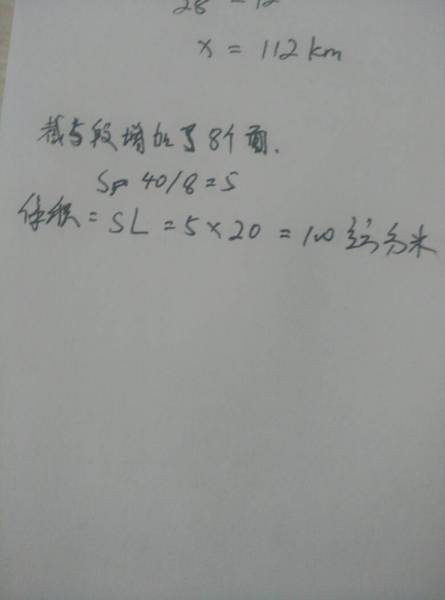 28 12
x = 112 km
截5段增加了8个面.
S= 40/8=5
体积 = SL = 5×20 = 100 立方分米